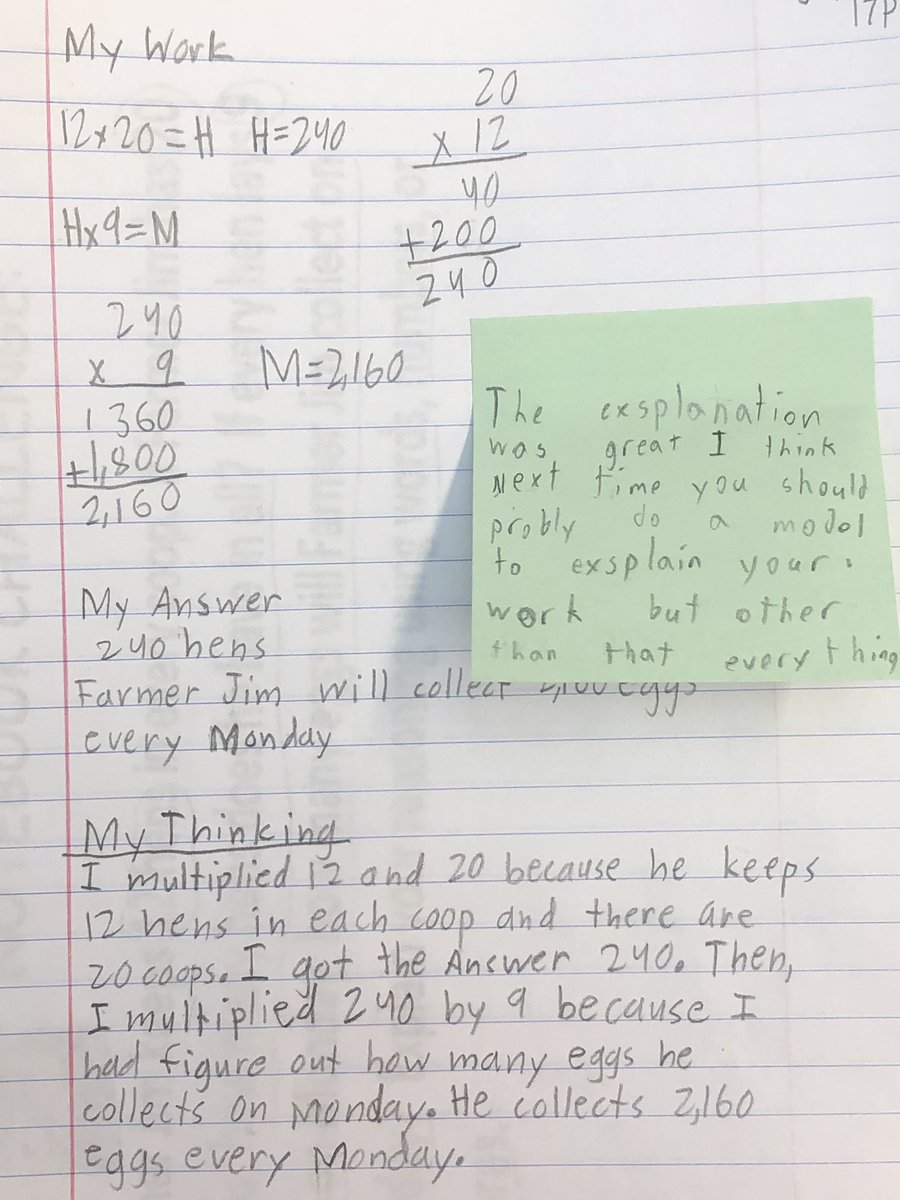 17P
My Work
12x20=H H=240
20
x 12
40
+200
240
Hx9=M
240
x 9
1360
+1,800
2,160
M=2,160
The exsplanation
was great I think
Next time you should
probly do a model
to exsplain your.
work but other
than that every thing
My Answer
240 hens
Farmer Jim will collect eggs
every Monday
My Thinking
I multiplied 12 and 20 because he keeps
12 hens in each coop and there are
20 coops. I got the Answer 240. Then,
I multiplied 240 by 9 because I
had figure out how many eggs he
collects on Monday. He collects 2,160
eggs every Monday.